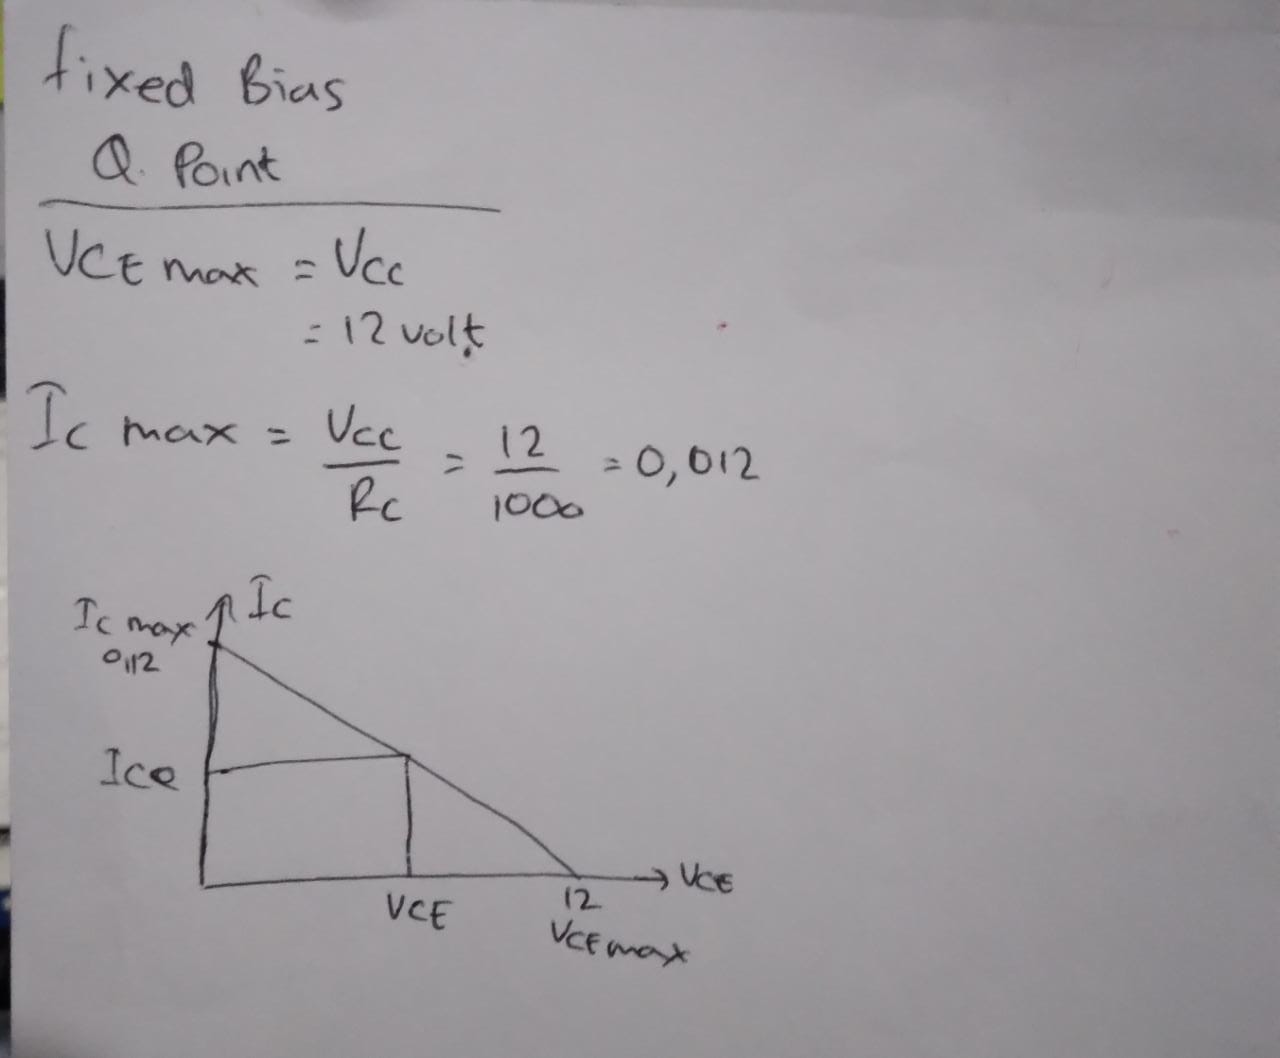 fixed Bias
Q. Point
VCE max = Vcc
= 12 volt
Ic max = Vcc / Rc = 12 / 1000 = 0,012
Ic max
0,112
Ic
ICQ
VCE
12
VCE max
VCE